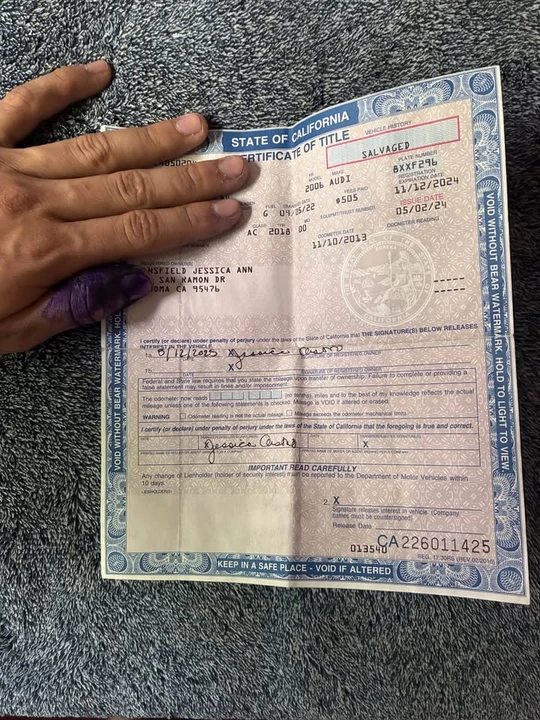 STATE OF CALIFORNIA
CERTIFICATE OF TITLE
VEHICLE HISTORY
SALVAGED
YR MODEL MAKE PLATE NUMBER
2006 AUDI 8XXF296
REGISTRATION EXPIRATION DATE
FUEL TRANSFER DATE FEES PAID
G 04/05/22 $505 11/12/2024
CLASS YR MO EQUIPMT/TRUST NUMBER ISSUE DATE
AC 2018 00 05/02/24
ODOMETER DATE ODOMETER READING
11/10/2013
REGISTERED OWNER(S)
NSFIELD JESSICA ANN
SAN RAMON DR
OMA CA 95476
I certify (or declare) under penalty of perjury under the laws of the State of California that THE SIGNATURE(S) BELOW RELEASES
INTEREST IN THE VEHICLE.
1a. X Jessica Castro
DATE SIGNATURE OF REGISTERED OWNER
1b. X
DATE SIGNATURE OF REGISTERED OWNER
Federal and State law requires that you state the mileage upon transfer of ownership. Failure to complete or providing a
false statement may result in fines and/or imprisonment.
The odometer now reads (no tenths), miles and to the best of my knowledge reflects the actual
mileage unless one of the following statements is checked.
WARNING Odometer reading is not the actual mileage. Mileage exceeds the odometer mechanical limits.
I certify (or declare) under penalty of perjury under the laws of the State of California that the foregoing is true and correct.
Jessica Castro X
IMPORTANT READ CAREFULLY
Any change of Lienholder (holder of security interest) must be reported to the Department of Motor Vehicles within
10 days.
LIENHOLDER(S)
2. X
Signature releases interest in vehicle. (Company
names must be countersigned)
Release Date
CA226011425
013540
REG. 17.30RS (REV. 02/2016)
KEEP IN A SAFE PLACE - VOID IF ALTERED
VOID WITHOUT BEAR WATERMARK. HOLD TO LIGHT TO VIEW
VOID WITHOUT BEAR WATERMARK. HOL